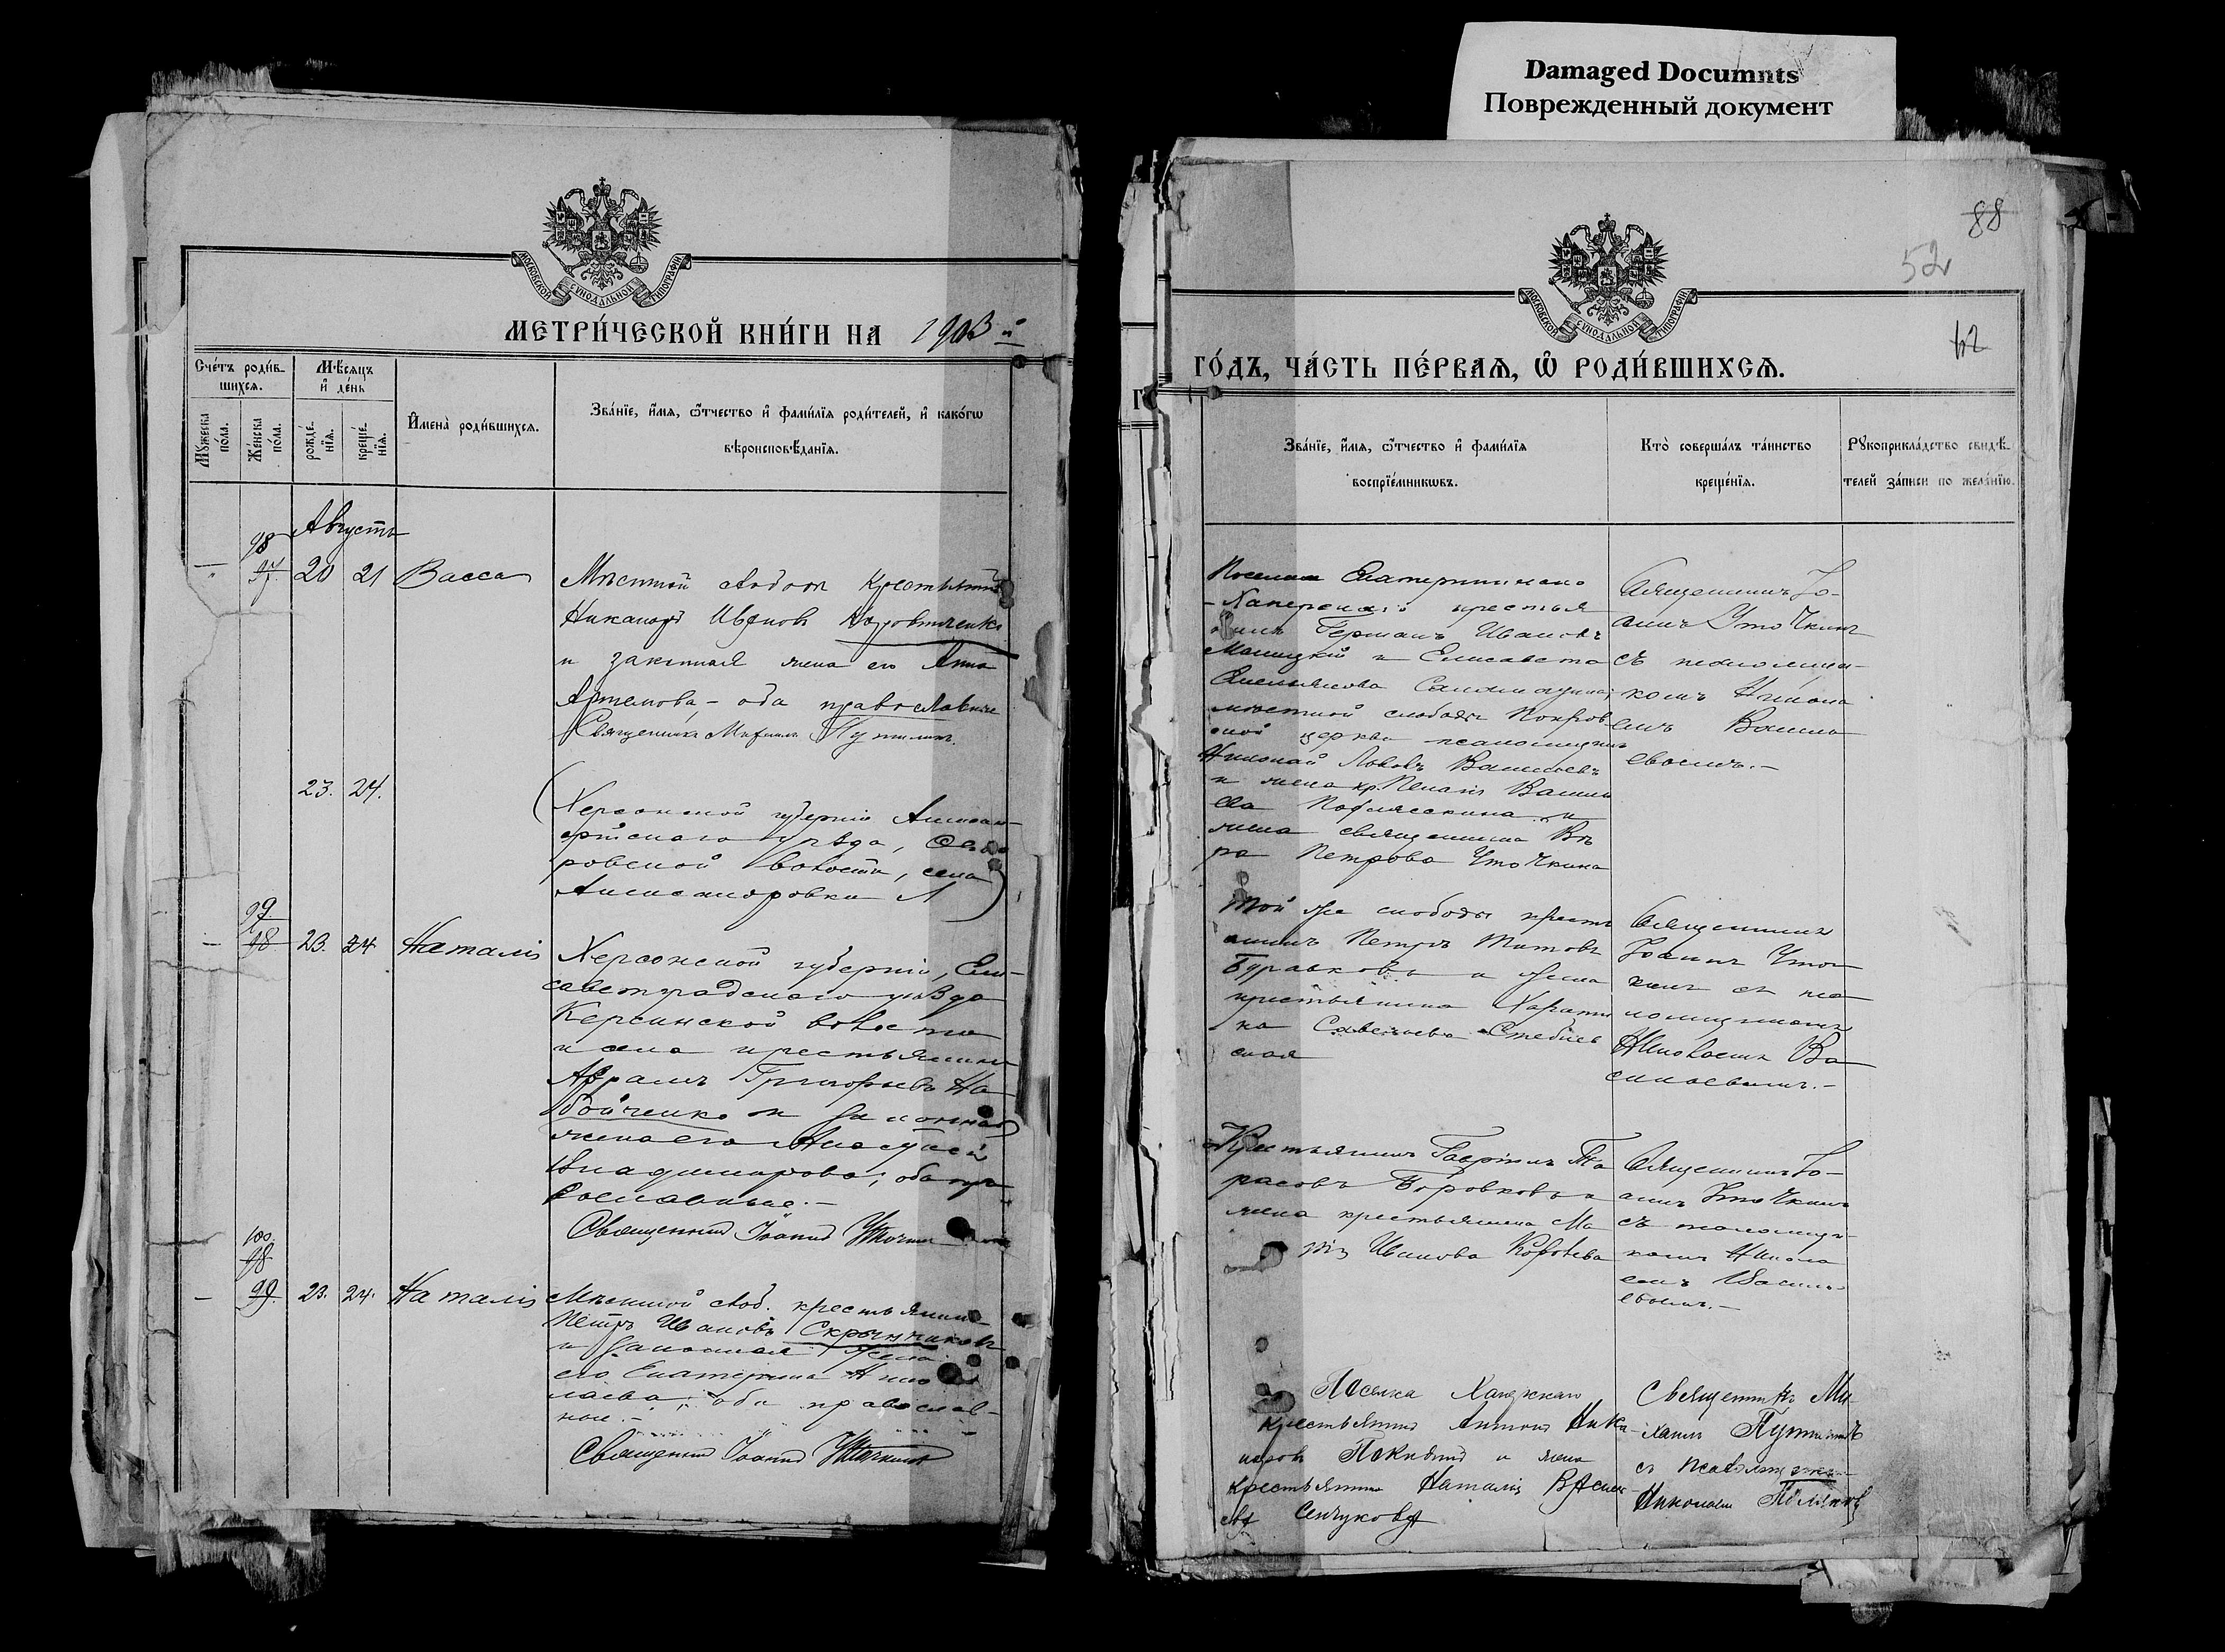 Damaged Documnts
Поврежденный документ
МОСКОВСКОЙ СУНОДАЛЬНОЙ ТИПОГРАФІИ
МЕТРИ́ЧЕСКОЙ КНИ́ГИ НА 1903 й
Сче́тъ роди́в-
шихсѧ.
Мѣ́сѧцъ
и҆ де́нь
Мꙋ́жеска
по́ла.
Же́нска
по́ла.
рожде́-
нїѧ.
креще́-
нїѧ.
И҆мена̀ роди́вшихсѧ.
Зва́нїе, и҆́мѧ, ѿ́чество и҆ фами́лїѧ роди́телей, и҆ како́гѡ
вѣроисповѣ́данїѧ.
Августъ
98
97. 20 21 Васса
Мѣстной слободы крестьянинъ
Никаноръ Ивановъ
и законная жена его Анна
Артемова - оба православные
Священникъ Михаилъ Путилинъ.
23. 24.
(Херсонской губерніи Алексан-
дрійскаго уѣзда,
ровской волости, села
Александровки
99.
98 23. 24 Наталія
Херсонской губерніи, Ели-
саветградскаго уѣзда
волости
и села крестьянинъ
Аврамъ Григорьевъ На
бойченко и законная
жена его Анастасія
Владимирова; оба пра-
вославные.-
Священник Іоанн Уточкин
100.
98
99. 23. 24. Наталія
Мѣстной слоб. крестьянинъ
Петръ Ивановъ Скрынниковъ
и законная жена
его Екатерина Нико
лаева; оба православ-
ные.-
Священник Іоанн Уточкинъ
88
52
МОСКОВСКОЙ СУНОДАЛЬНОЙ ТИПОГРАФІИ
ГО́ДЪ, ЧА́СТЬ ПЕ́РВАѦ, Ѡ҆ РОДИ́ВШИХСѦ.
Зва́нїе, и҆́мѧ, ѿ́чество и҆ фами́лїѧ
воспрїе́мникѡвъ.
Кто̀ соверша́лъ та́инство
креще́нїѧ.
Рꙋкоприкла́дство свидѣ́-
телей за́писи по жела́нїю.
Поселка Екатериновско
-Хаперскаго крестья
нинъ Германъ Ивановъ
и Елисавета
Емельянова
мѣстной слободы Покров
ской церкви псаломщикъ
Николай Львовъ Васильевъ
и жена кр. Пелагія Васил
ева и
жена священника Вѣ
ра Петрова Уточкина
Священникъ Іо-
аннъ Уточкинъ
съ псаломщи-
комъ Никола
емъ Василь
евымъ.-
Той же слободы кресть
янинъ Петръ Титовъ
Буравковъ и жена
крестьянина Харити
на Савельева
ская
Священникъ
Іоаннъ Уточ
кинъ съ пса
ломщикомъ
Николаемъ Ва
сильевымъ.-
Крестьянинъ Гавріилъ Та
расовъ Боровковъ и
жена крестьянина Ма
рія Иванова Коробева
Священникъ Іо-
аннъ Уточкинъ
съ псаломщи-
комъ Никола
емъ Василь-
евымъ.-
Поселка Ханжскаго
крестьянинъ Антонъ Ника-
норовъ и жена
крестьянина Наталія Василь
ева Сенчукова
Священникъ Ми-
хаилъ Путилинъ
съ псаломщикомъ
Николаемъ